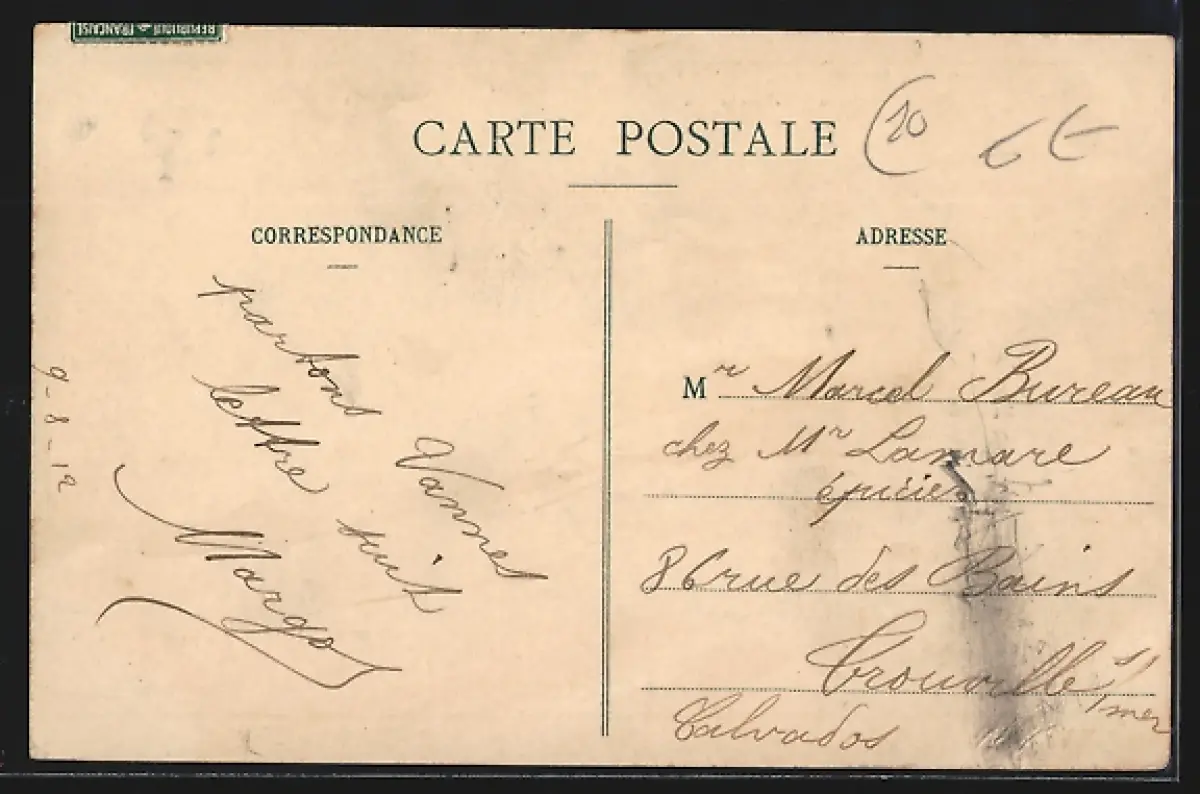 REPUBLIQUE FRANÇAISE
CARTE POSTALE
20
CORRESPONDANCE
ADRESSE
Vannes
partons
lettre suit
Margot
9-8-12
Mr Marcel Bureau
chez Mr Lamare
épicier
86 rue des Bains
Trouville s/mer
Calvados